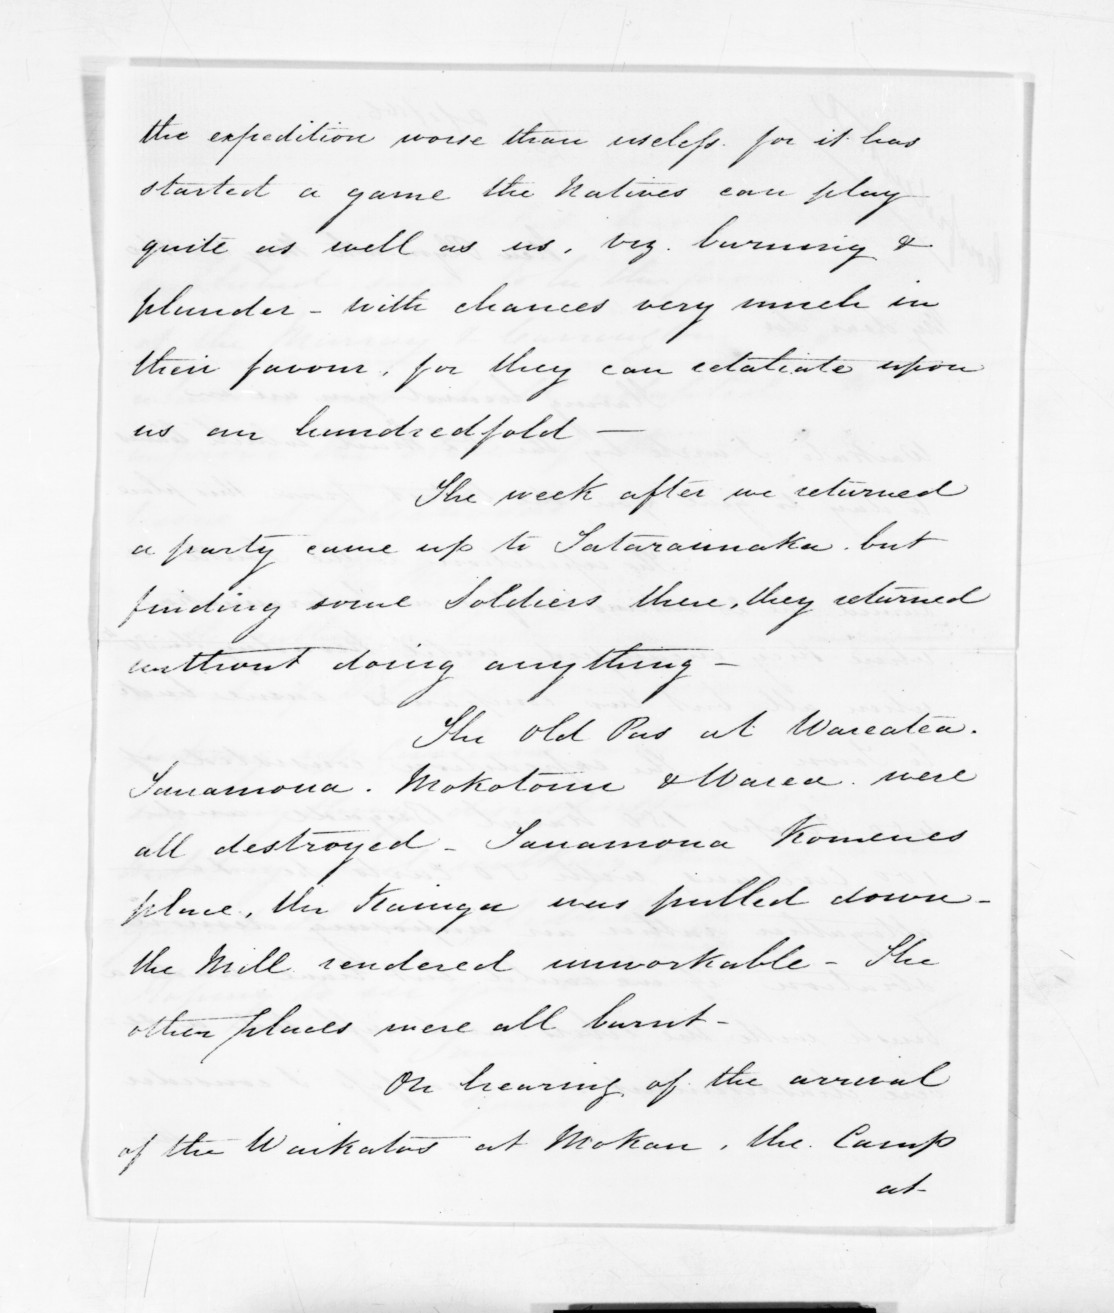 the expedition worse than useless. for it has
started a game the Natives can play
quite as well as us, viz. burning &
plunder - with chances very much in
their favour, for they can retaliate upon
us an hundredfold -
The week after we returned
a party came up to Tataraimaka. but
finding some Soldiers there, they returned
without doing anything -
The old Pas at Wareatea.
Tanamona. Mokotoru & Warea. were
all destroyed - Tanamona Komenes
place, the Kainga was pulled down -
the Mill rendered unworkable - The
other places were all burnt -
On hearing of the arrival
of the Waikatos at Mokau, the Camp
at